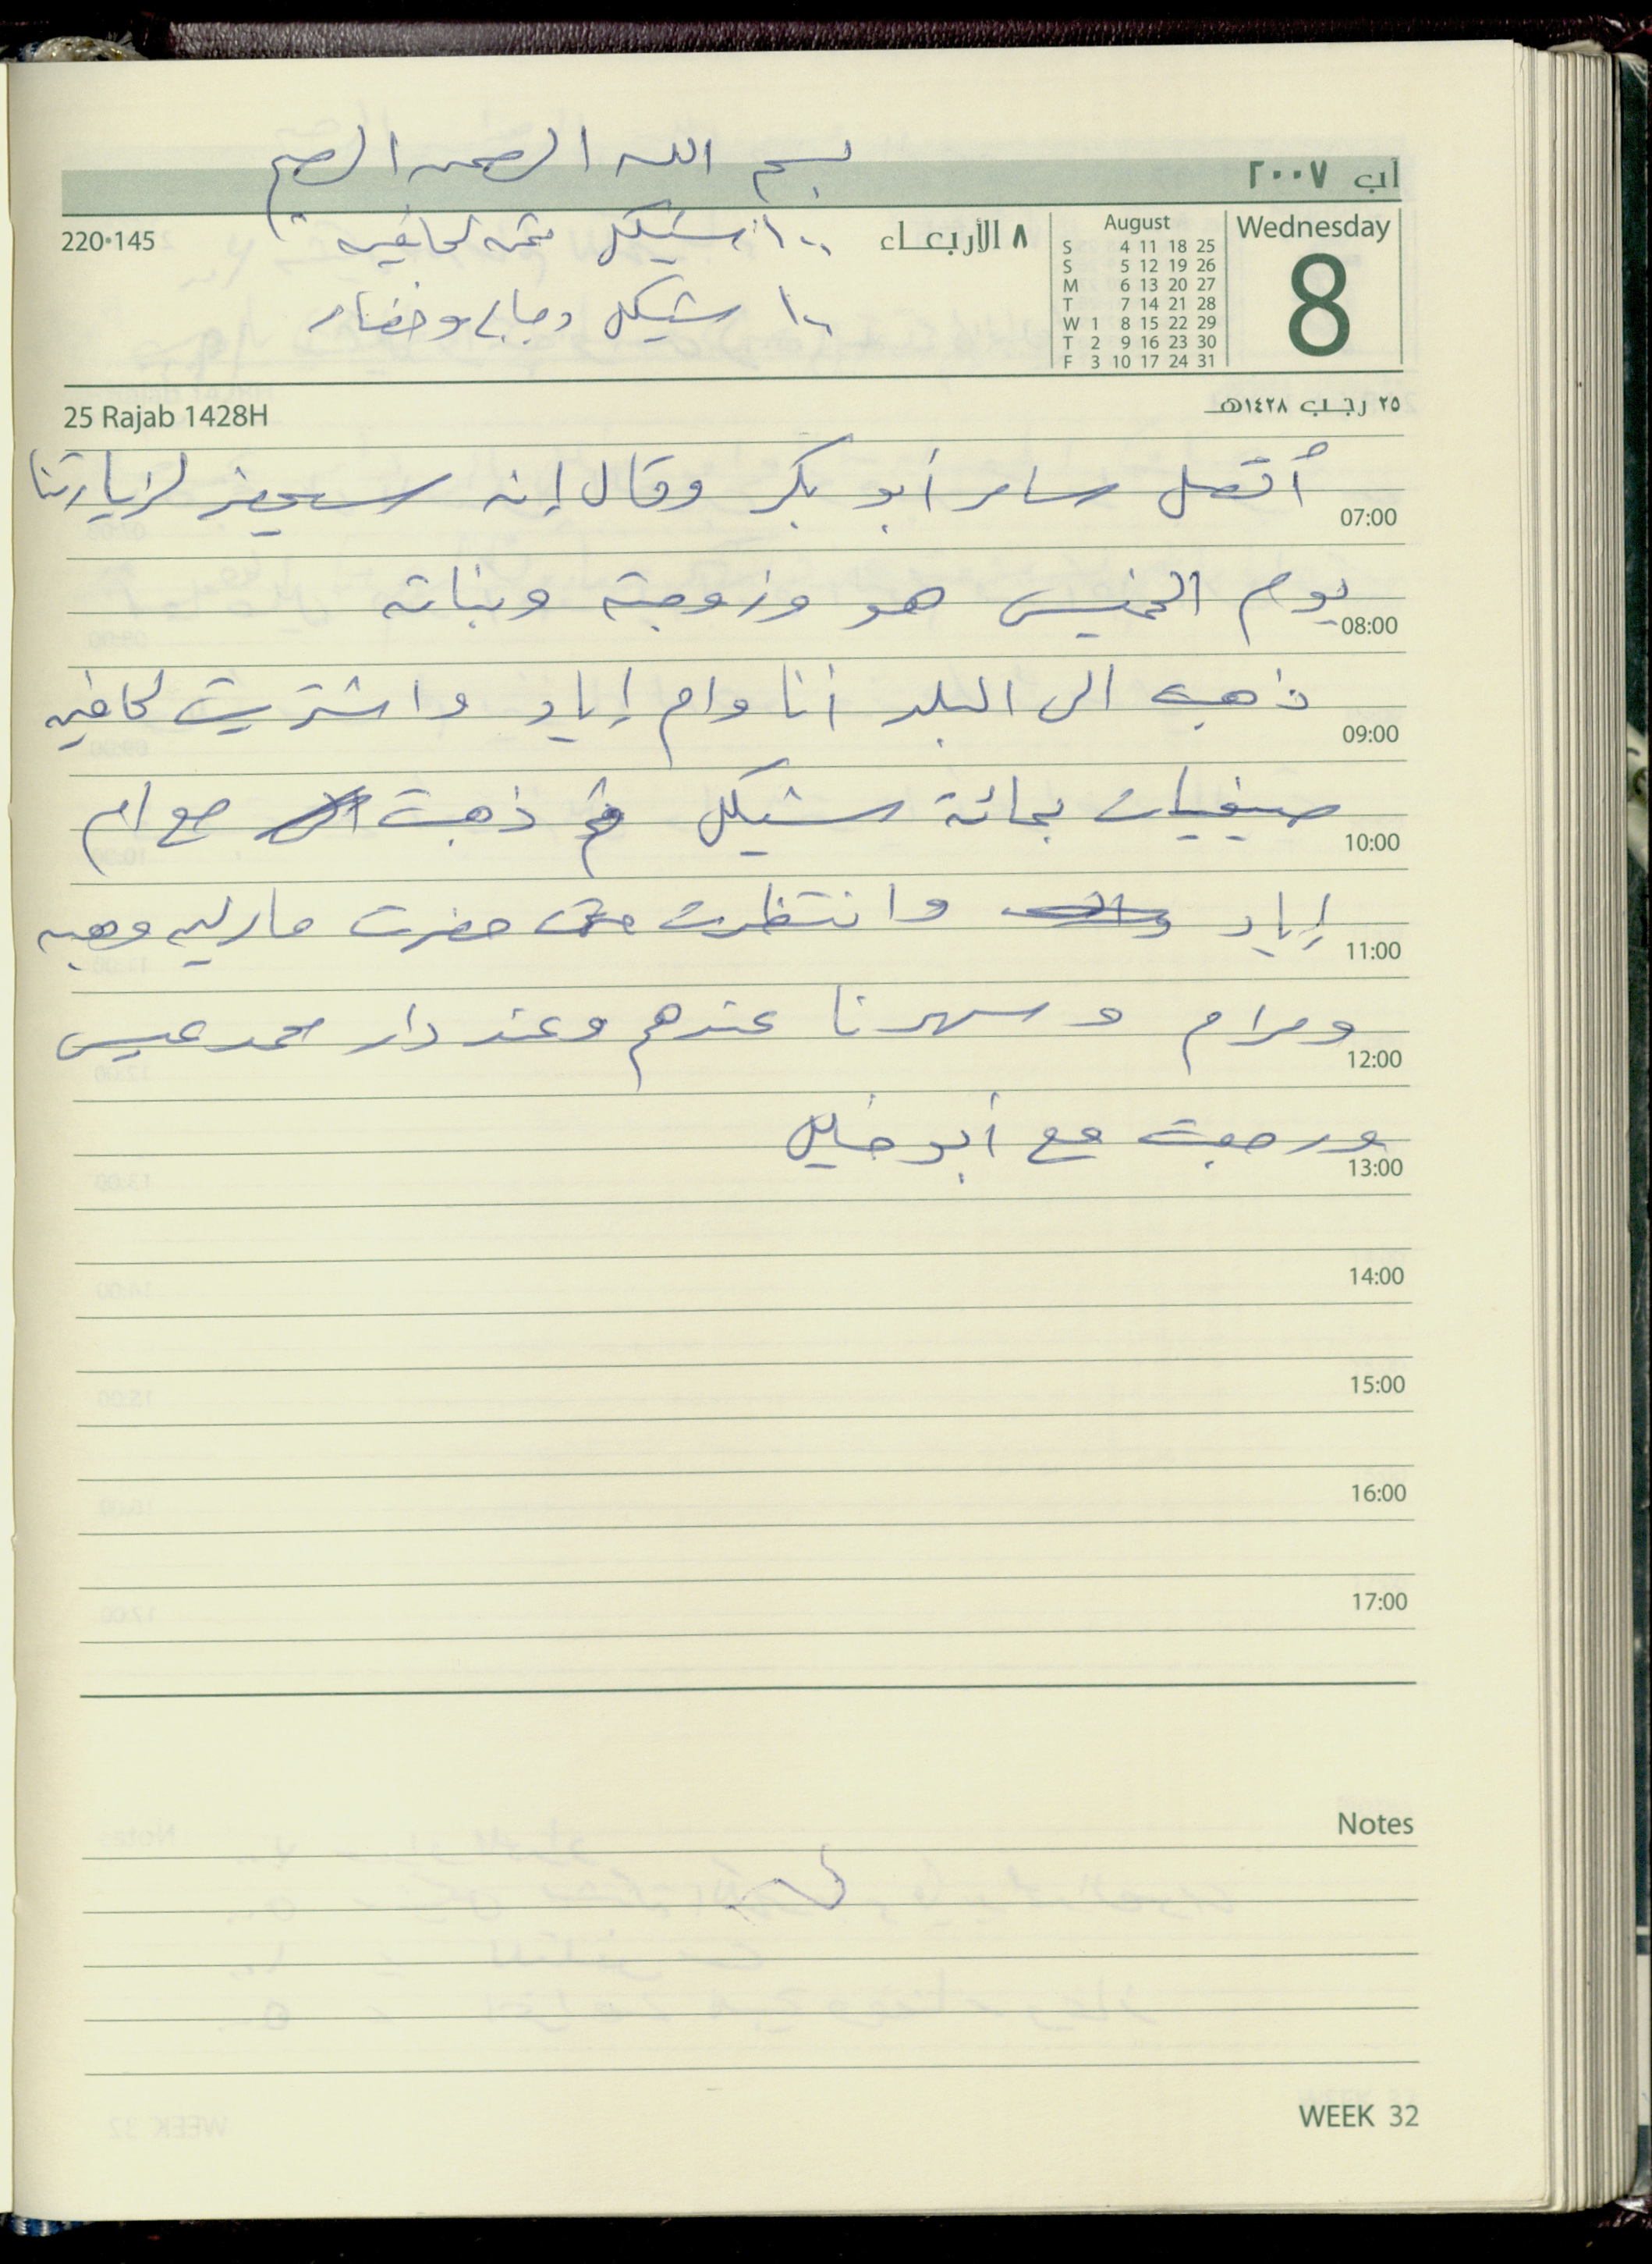 بسم الله الرحمن الرحيم
آب ٢٠٠٧
Wednesday
8
August
S 4 11 18 25
S 5 12 19 26
M 6 13 20 27
T 7 14 21 28
W 1 8 15 22 29
T 2 9 16 23 30
F 3 10 17 24 31
٨ الأربعاء
220•145
١٠٠ شيكل ثمن لحافين
١٠٠ شيكل دجاج وخضار
25 Rajab 1428H
٢٥ رجب ١٤٢٨هـ
أتصل سامر أبو بكر وقال إنه سيحضر لزيارتنا
07:00
يوم الخميس هو وزوجته وبناته
08:00
ذهبت الى البلد أنا وام إياد واشتريت لحافين
09:00
صيفيات بمائة شيكل ثم ذهبت مع ام
10:00
إياد وانتظرت حتى حضرت مارلين وهبه
11:00
ومرام وسهرنا عندهم وعند دار محمد عيسى
12:00
ورجعت مع أبو خليل
13:00
14:00
15:00
16:00
17:00
Notes
WEEK 32